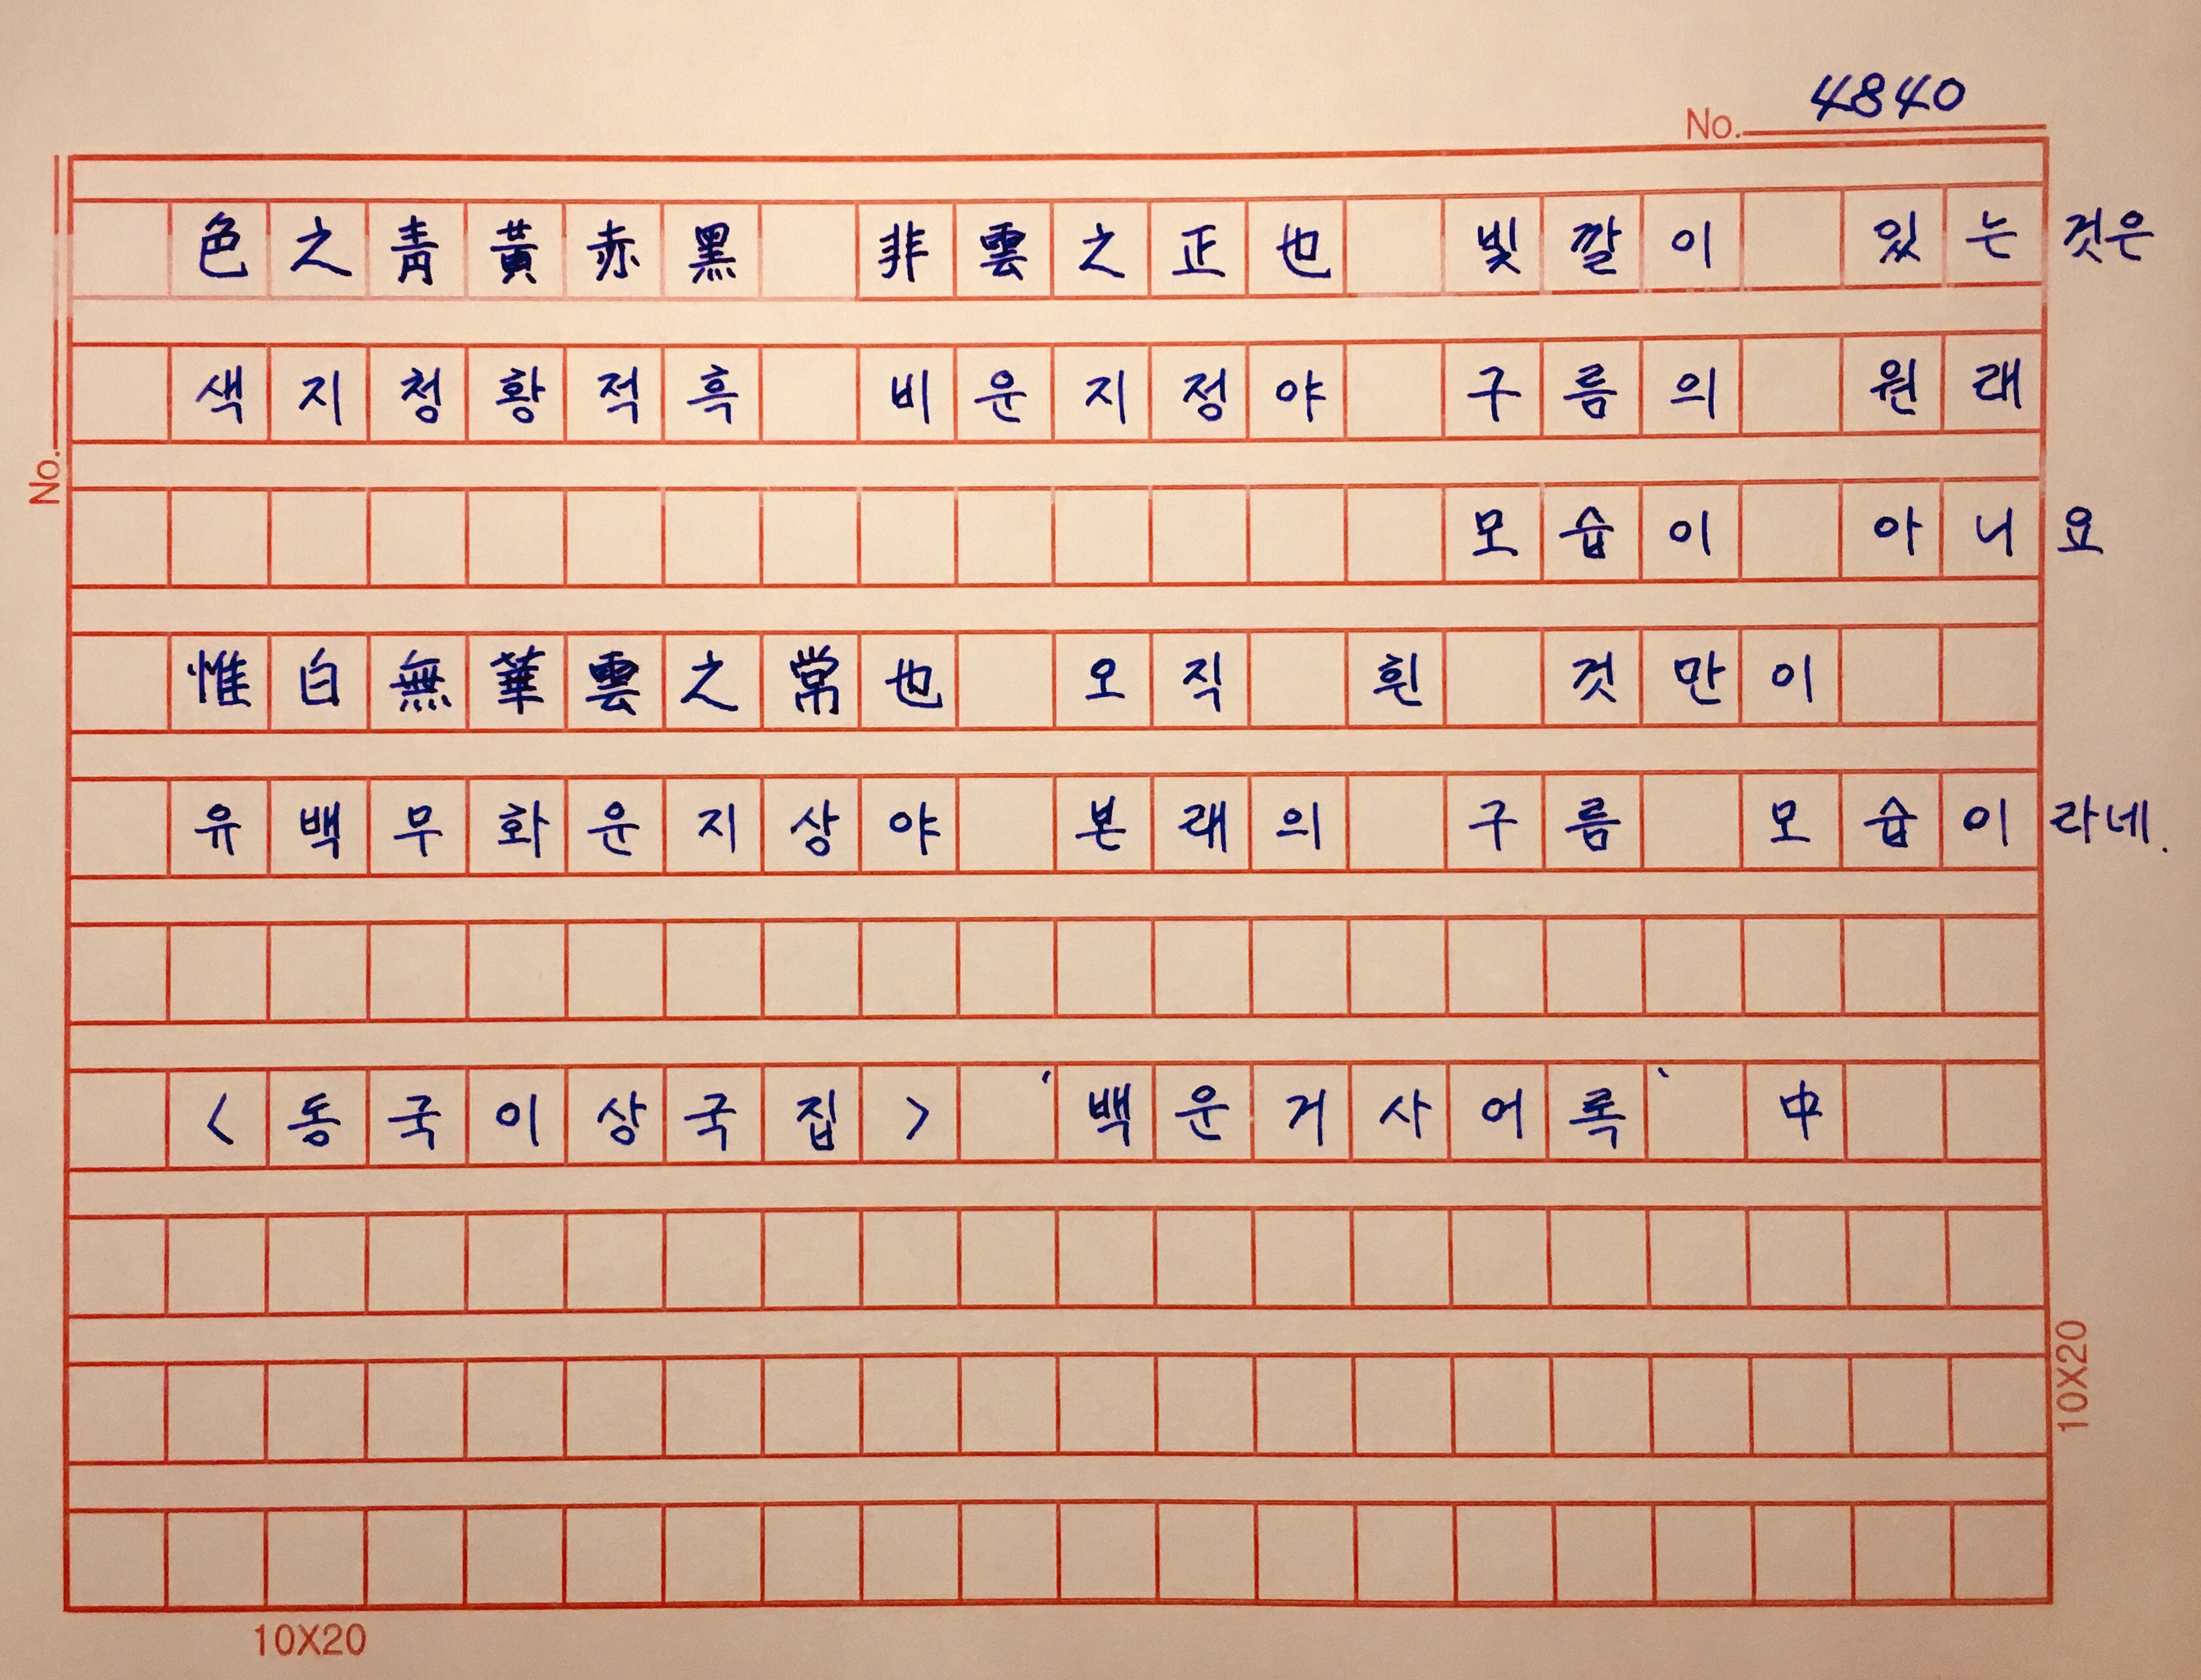 No. 4840
色之靑黃赤黑 非雲之正也 빛깔이 있는 것은
색지청황적흑 비운지정야 구름의 원래
No.
모습이 아니요
惟白無華雲之常也 오직 흰 것만이
유백무화운지상야 본래의 구름 모습이라네.
<동국이상국집> '백운거사어록' 中
10X20
10X20